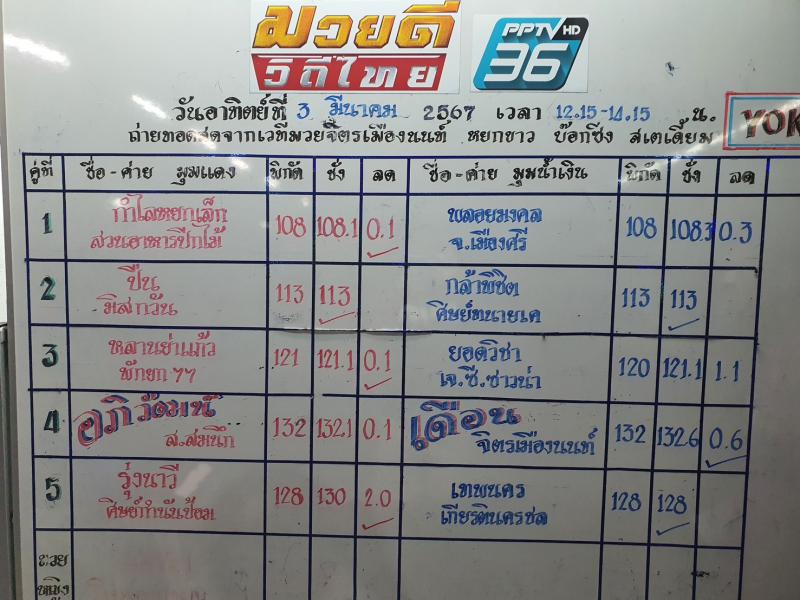 มวยดี
วิถีไทย
PPTV HD
36
วันอาทิตย์ที่ 3 มีนาคม 2567 เวลา 12.15-14.15 น.
ถ่ายทอดสดจากเวทีมวยจิตรเมืองนนท์ หยกขาว บ๊อกซิ่ง สเตเดี้ยม
YOK
คู่ที่ ชื่อ-ค่าย มุมแดง พิกัด ชั่ง ลด ชื่อ-ค่าย มุมน้ำเงิน พิกัด ชั่ง ลด
1 กำไลหยกเล็ก 108 108.1 0.1 พลอยมงคล 108 108.3 0.3
สวนอาหารปีกไม้ จ.เมืองศรี
2 ปืน 113 113 กล้าพิชิต 113 113
มิสกวัน ศิษย์ทนายเค
3 หลานย่าแก้ว 121 121.1 0.1 ยอดวิชา 120 121.1 1.1
พักยก77 เจ.ซี.ซาวน่า
4 อภิวัฒน์ 132 132.1 0.1 เดือน 132 132.6 0.6
ส.สมนึก จิตรเมืองนนท์
5 รุ่งนาวี 128 130 2.0 เทพนคร 128 128
ศิษย์กำนันป้อม เกียรตินครชล
มวย
หญิง